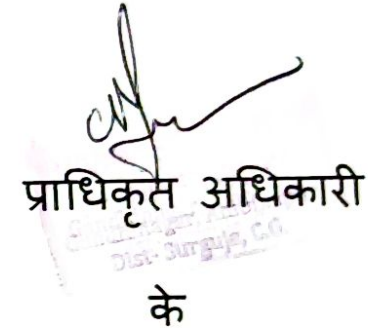 प्राधिकृत अधिकारी
Dist- Surguja, C.G
के